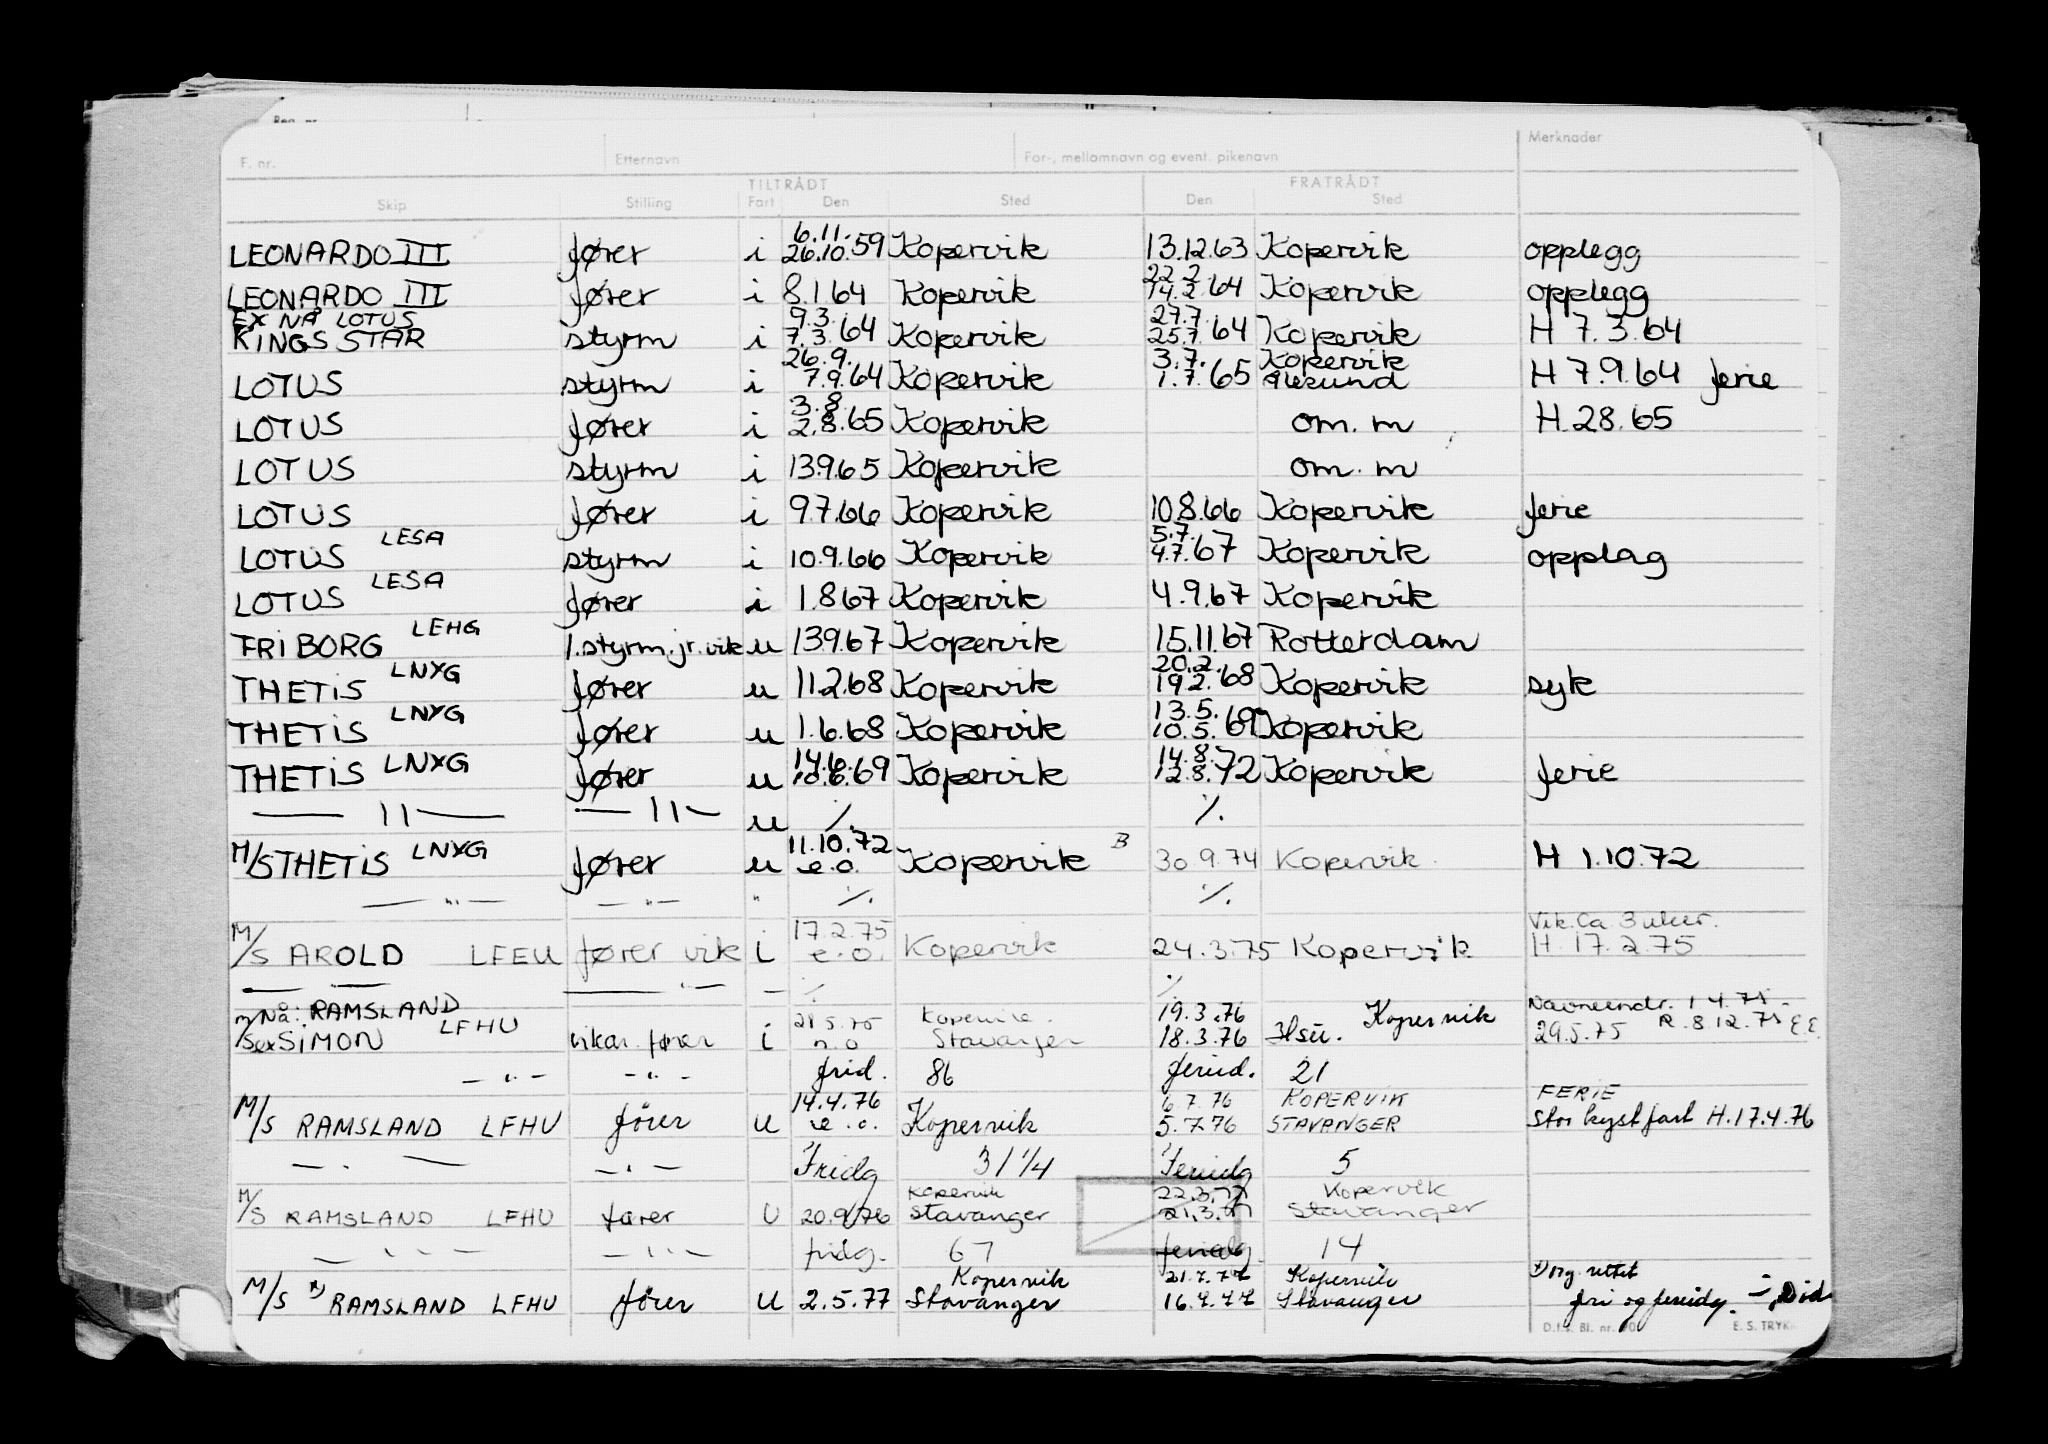 F. nr. Etternavn For-, mellomnavn og event. pikenavn Merknader
TILTRÅDT FRATRÅDT
Skip Stilling Fart Den Sted Den Sted
6.11. 
LEONARDO III fører i 26.10.59 Kopervik 13.12.63 Kopervik opplegg
22.2
LEONARDO III fører i 8.1.64 Kopervik 14.2.64 Kopervik opplegg
EX NÅ LOTUS 9.3. 27.7.
KINGS STAR styrm i 7.3.64 Kopervik 25.7.64 Kopervik H 7.3.64
26.9. 3.7. Kopervik
LOTUS styrm i 7.9.64 Kopervik 1.7.65 Ålesund H 7.9.64 ferie
3.8.
LOTUS fører i 2.8.65 Kopervik om. m H.28.65
LOTUS styrm i 13.9.65 Kopervik om. m
LOTUS fører i 9.7.66 Kopervik 10.8.66 Kopervik ferie
LESA 5.7.
LOTUS styrm i 10.9.66 Kopervik 4.7.67 Kopervik opplag
LOTUS LESA fører i 1.8.67 Kopervik 4.9.67 Kopervik
FRIBORG LEHG 1.styrm.jr.vik u 13.9.67 Kopervik 15.11.67 Rotterdam
LNXG 20.2.
THETIS fører u 11.2.68 Kopervik 19.2.68 Kopervik syk
LNXG 13.5.
THETIS fører u 1.6.68 Kopervik 10.5.69 Kopervik
14.6. 14.8.
THETIS LNXG fører u 10.6.69 Kopervik 12.8.72 Kopervik ferie
— 11 — — 11 — u ·/. ·/.
11.10.72 B
M/S THETIS LNXG fører u e.o. Kopervik 30.9.74 Kopervik H 1.10.72
— " — — " — " ·/. ·/.
17.2.75 Vik. Ca. 3 uker.
M/S AROLD LFEU fører vik i e.o. Kopervik 24.3.75 Kopervik H. 17.2.75
— — — " — — ·/. ·/.
Nå: RAMSLAND Kopervik 19.3.76 Kopervik Navneendr.
M/S ex SIMON LFHU vikar. fører i Stavanger 18.3.76 29.5.75 R. 8.12.75
— " — — " — frid. 86 feried. 21
14.4.76 6.7.76 KOPERVIK FERIE
M/S RAMSLAND LFHU fører u e.o. Kopervik 5.7.76 STAVANGER Stor kystfart H.17.4.76
— " — — " — Fridg 31 1/4 Feriedg 5
Kopervik 22.3.77 Kopervik
M/S RAMSLAND LFHU fører U 20.9.76 Stavanger 21.3.77 Stavanger
— " — — " — fridg. 67 feriedg. 14
Kopervik 21.7.77 Kopervik
M/S x) RAMSLAND LFHU fører u 2.5.77 Stavanger 16.7.77 Stavanger fri og feriedg.
E. S. TRYKK